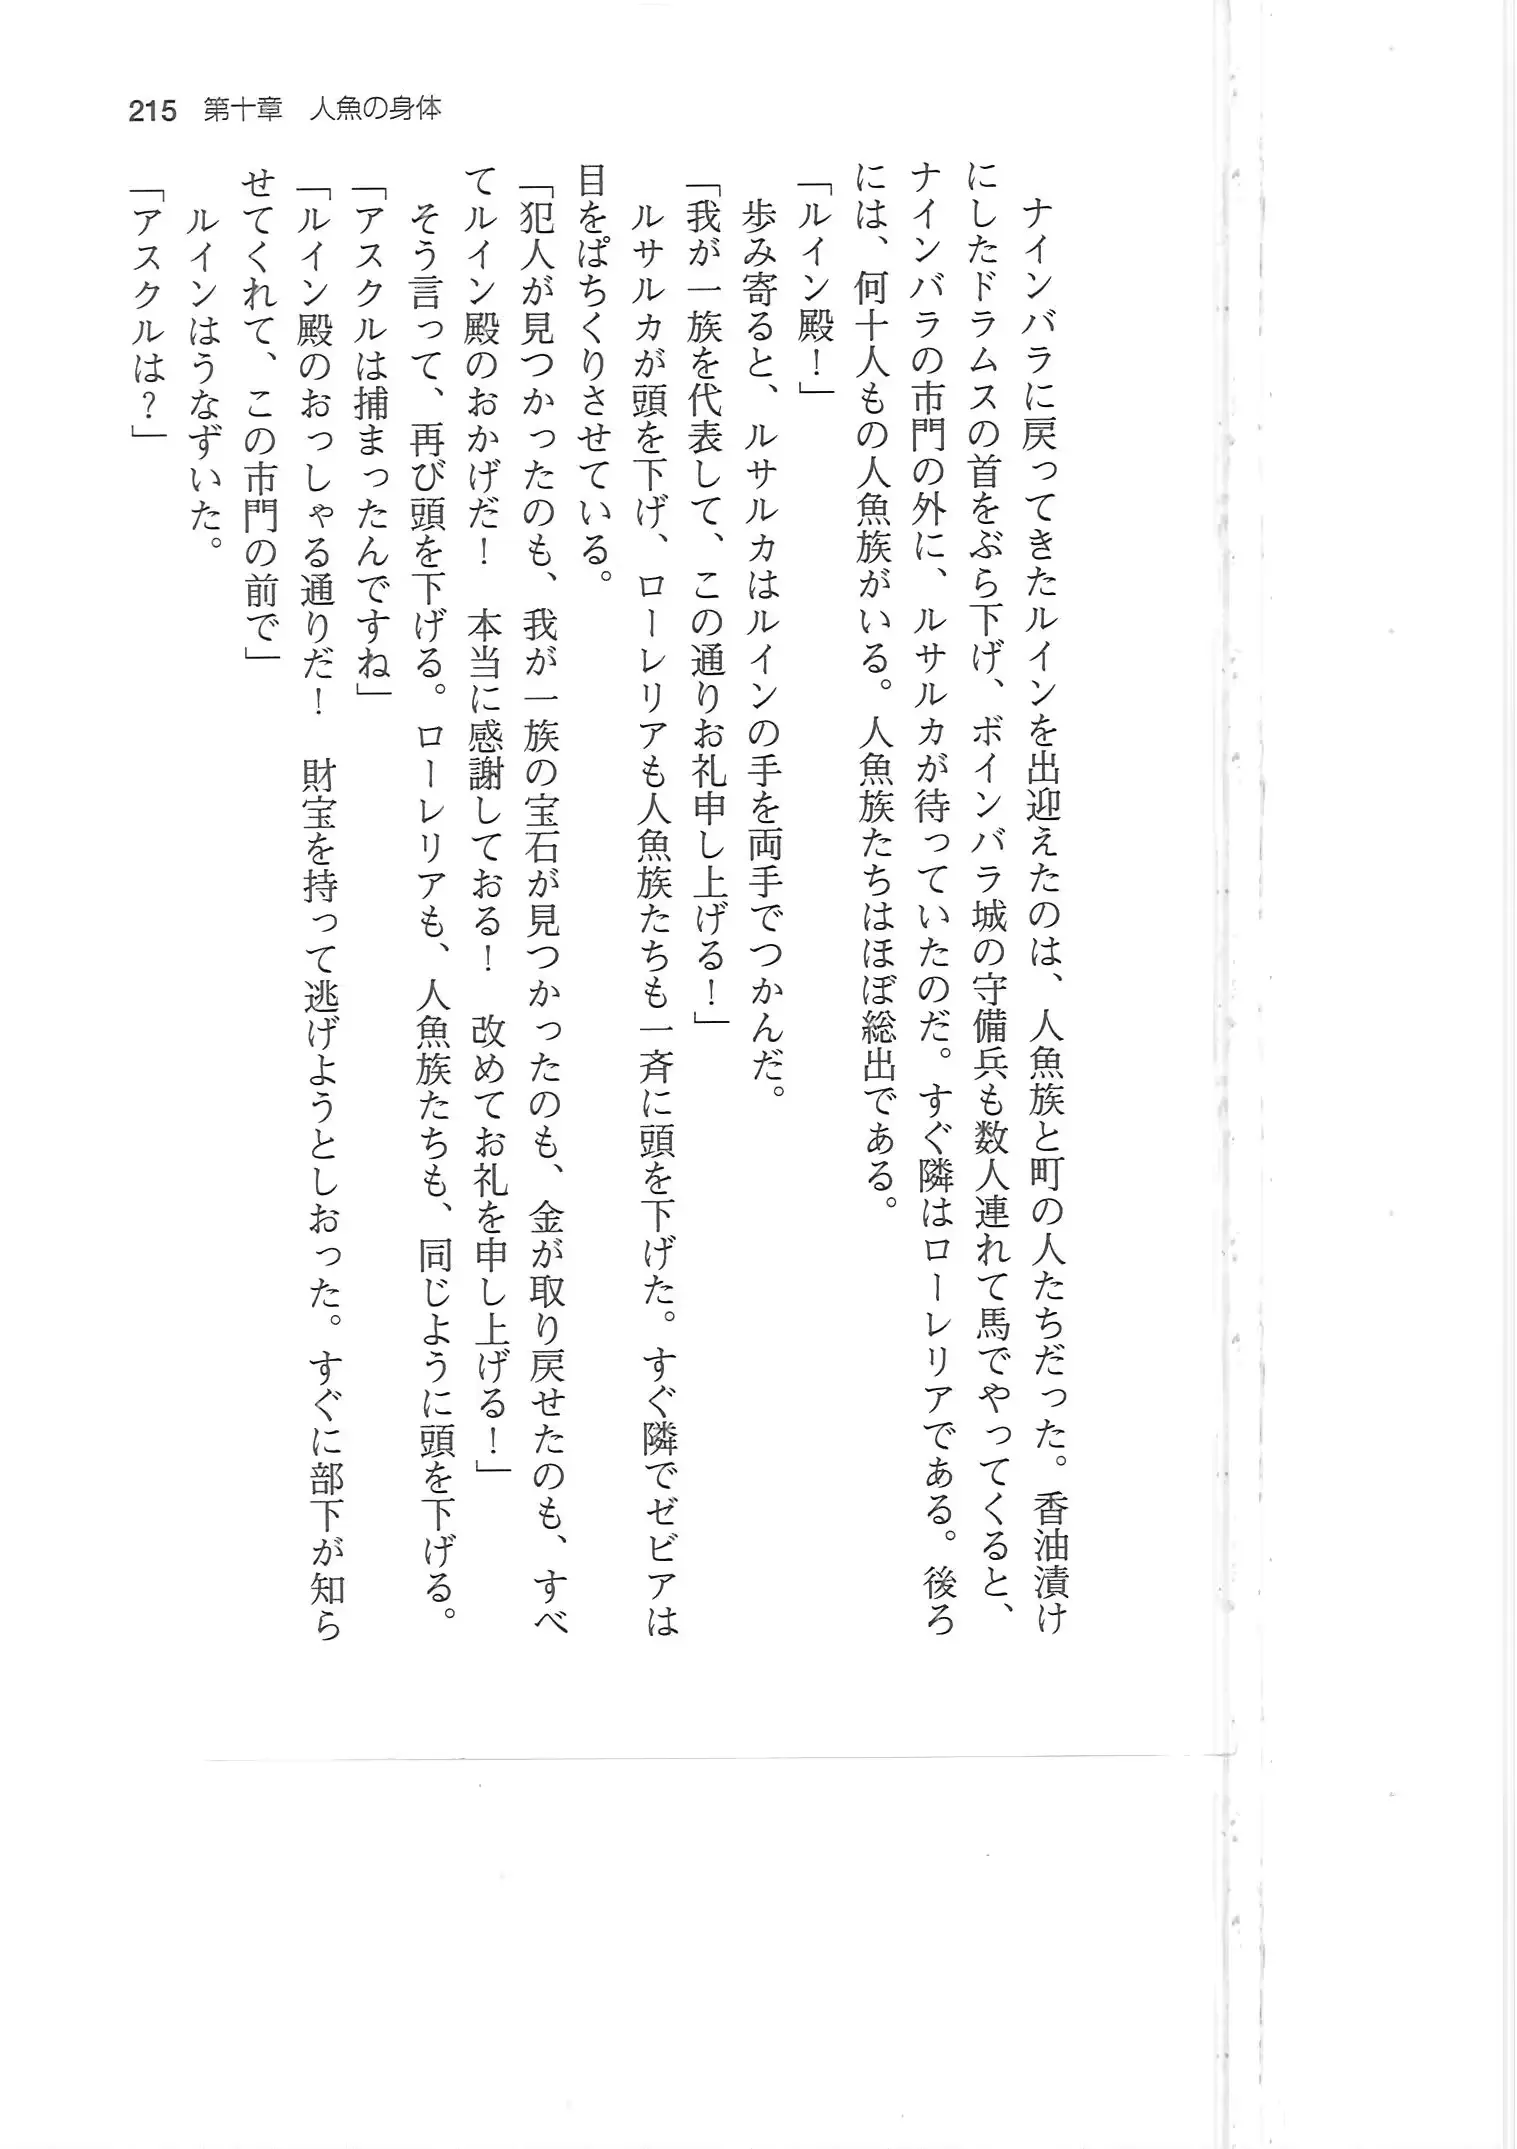 215 第十章 人魚の身体
　ナインバラに戻ってきたルインを出迎えたのは、人魚族と町の人たちだった。香油漬け
にしたドラムスの首をぶら下げ、ボインバラ城の守備兵も数人連れて馬でやってくると、
ナインバラの市門の外に、ルサルカが待っていたのだ。すぐ隣はローレリアである。後ろ
には、何十人もの人魚族がいる。人魚族たちはほぼ総出である。
「ルイン殿！」
　歩み寄ると、ルサルカはルインの手を両手でつかんだ。
「我が一族を代表して、この通りお礼申し上げる！」
　ルサルカが頭を下げ、ローレリアも人魚族たちも一斉に頭を下げた。すぐ隣でゼビアは
目をぱちくりさせている。
「犯人が見つかったのも、我が一族の宝石が見つかったのも、金が取り戻せたのも、すべ
てルイン殿のおかげだ！　本当に感謝しておる！　改めてお礼を申し上げる！」
　そう言って、再び頭を下げる。ローレリアも、人魚族たちも、同じように頭を下げる。
「アスクルは捕まったんですね」
「ルイン殿のおっしゃる通りだ！　財宝を持って逃げようとしおった。すぐに部下が知ら
せてくれて、この市門の前で」
　ルインはうなずいた。
「アスクルは？」